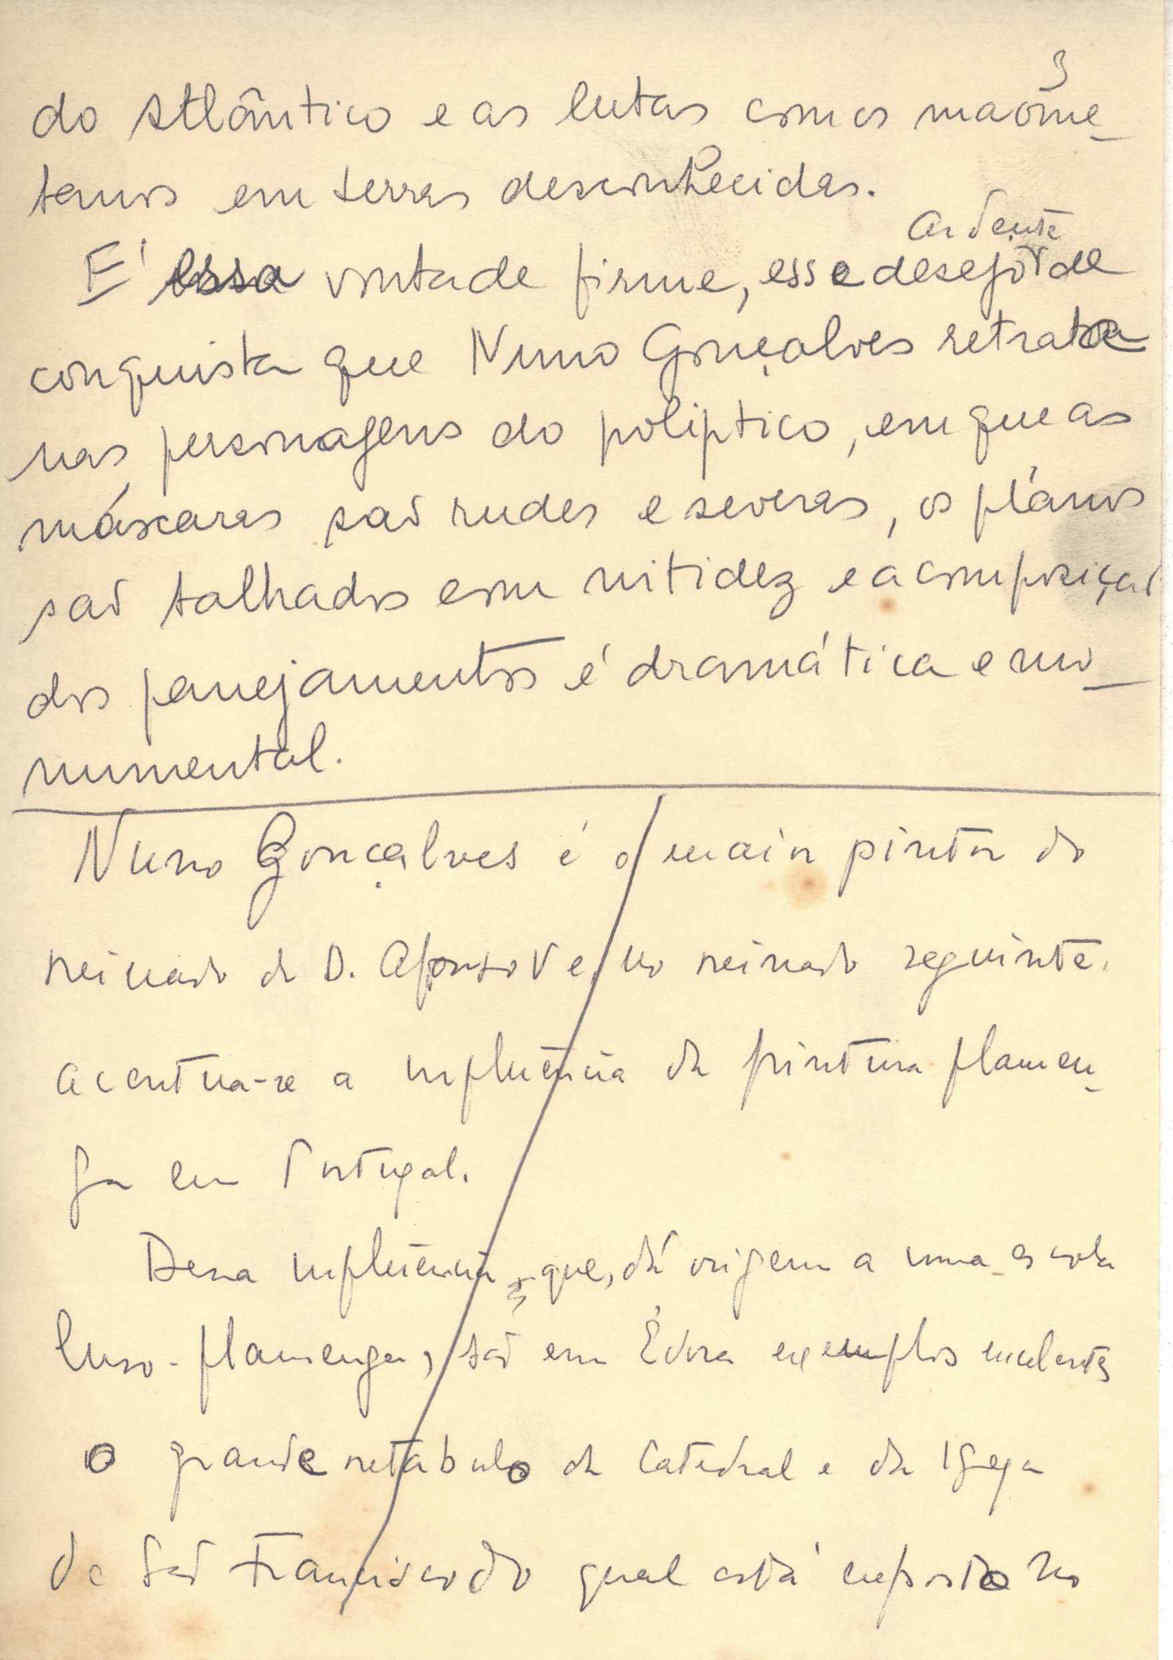 3
do Atlântico e as lutas com os maome-
tanos em terras desconhecidas.
ardente
E' essa vontade firme, esse desejo de
conquista que Nuno Gonçalves retrata
nas personagens do poliptico, em que as
máscaras são rudes e severas, os planos
são talhados com nitidez e a composição
dos panejamentos é dramática e mo-
numental.
Nuno Gonçalves é o maior pintor do
reinado de D. Afonso V e, no reinado seguinte,
acentua-se a influência da pintura flamen-
ga em Portugal.
Dessa influência que, dá origem a uma escola
luso-flamenga, são em Évora exemplos excelentes
o grande retábulo da Catedral e da Igreja
de São Francisco do qual está exposto no